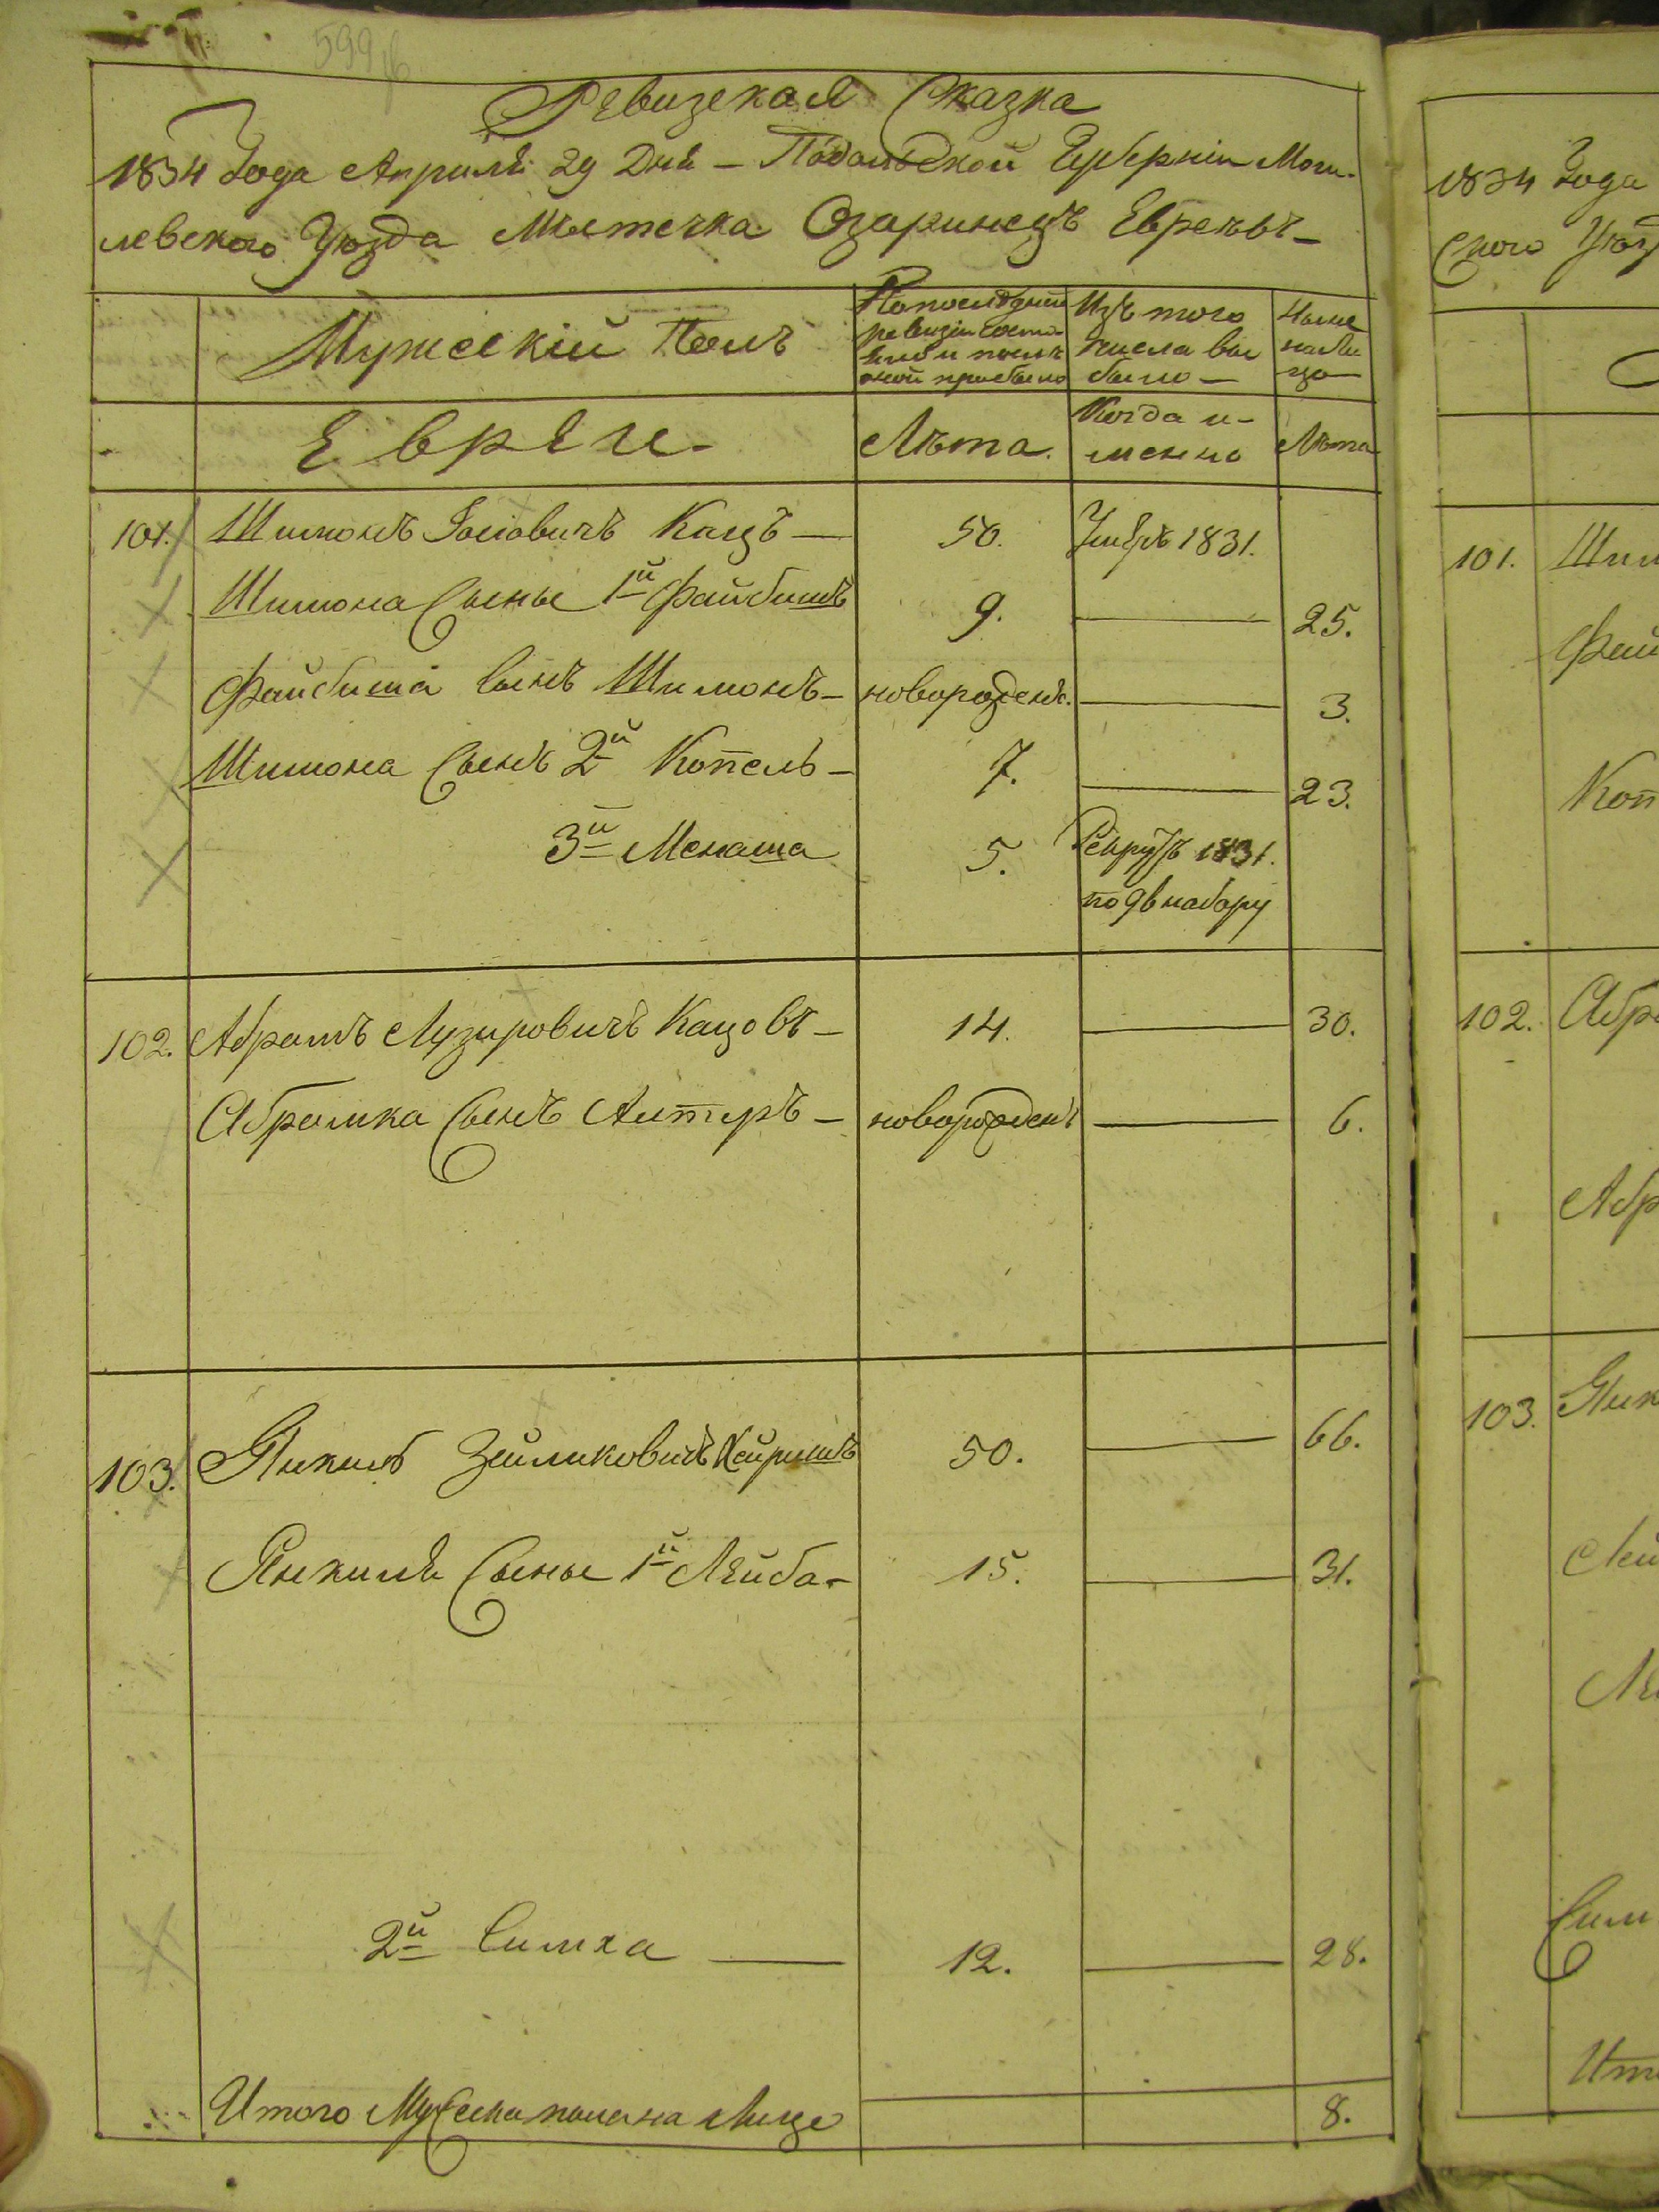 599
Ревизская Сказка
1834 Года Апреля 29 Дня – Подольской Губернiи Моги-
левского Уѣзда Мѣстечка Озаринецъ Евреевъ –
Мужескiй Полъ
По последней
ревизiи состо
яло и после
оной прибыло
Изъ того
числа вы
было –
Ныне
на ли
цо
Евреи –
Лѣта.
Когда и-
менно
Лѣта
101. Шимонъ Iосiовичъ Кацъ — 50. Умеръ 1831.
Шимона Сыны 1й Файбишъ 9. — 25.
Файбиша Сынъ Шимонъ – новорожденъ. — 3.
Шимона Сынъ 2й Копель – 7. — 23.
3й Менаша 5. Рекрутъ 1831.
по 96 набору
102. Абрамъ Лузеровичъ Кацовъ – 14. — 30.
Абрамка Сынъ Алтеръ – новорожденъ — 6.
103. Янкель Зейликовичъ 50. — 66.
Янкеля Сыны 1й Лейба – 15. — 31.
2й Симха — 12. — 28.
Итого Мужеска пола на лице 8.
1834 Года
ского Уѣз
101. Шим
Фай
Коп
102. Абра
Абр
103. Янк
Лей
Ле
Сим
Ит